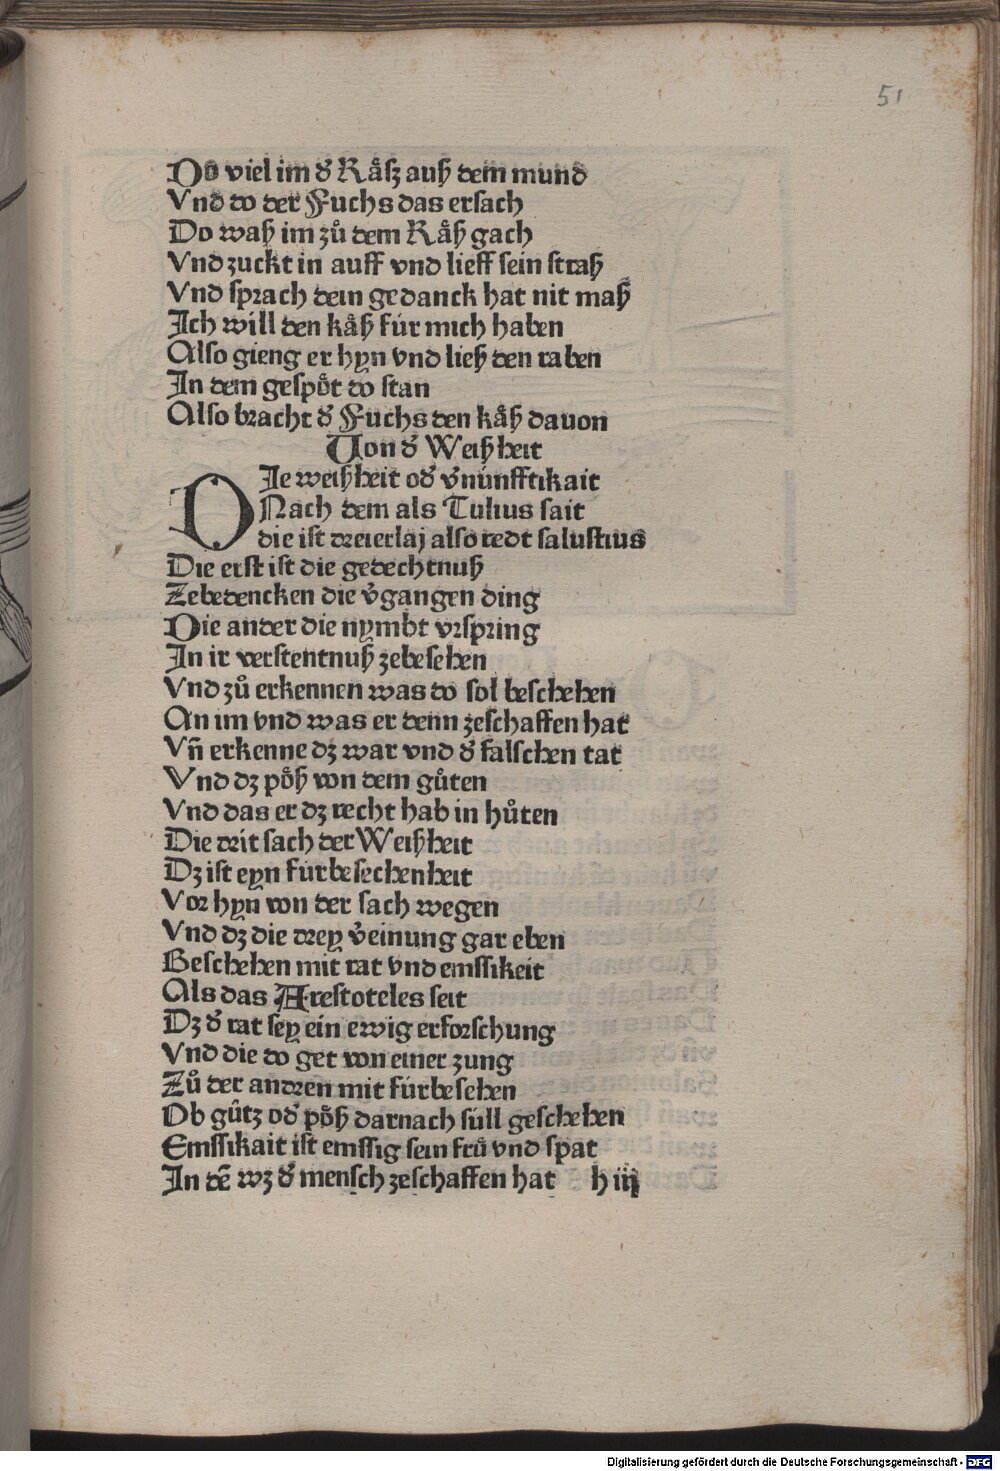 51
Do viel im d̕ Kåſz auſʒ dem mund
Vnd do der Fuchs das erſach
Do waſʒ im zů dem Kåſʒ gach
Vnd zuckt in auff vnd lieff ſein ſtraſʒ
Vnd ſprach dein gedanck hat nit maſʒ
Ich will den kåſʒ für mich haben
Alſo gieng er hyn vnd lieſʒ den raben
In dem geſpöt do ſtan
Alſo bracht d̕ Fuchs den kåſʒ dauon
Von d̕ Weiſʒheit
DIe weiſʒheit od̕ v̕nünfftikait
Nach dem als Tulius ſait
die iſt dreierlaj alſo redt ſaluſtius
Die erſt iſt die gedechtnuſʒ
Zebedencken die v̕gangen ding
Die ander die nymbt vrſpring
In ir verſtentnuſʒ zebeſehen
Vnd zů erkennen was do ſol beſchehen
An im vnd was er denn zeſchaffen hat
Vn̄ erkenne dʒ war vnd d̕ falſchen tat
Vnd dʒ pöſʒ von dem gůten
Vnd das er dʒ recht hab in hůten
Die drit ſach der Weiſʒheit
Dʒ iſt eyn fürbeſechenheit
Vor hyn von der ſach wegen
Vnd dʒ die drey v̕einung gar eben
Beſchehen mit rat vnd emſſikeit
Als das Areſtoteles ſeit
Dʒ d̕ rat ſey ein ewig erforſchung
Vnd die do get von einer zung
Zů der andren mit fürbeſehen
Ob gůtz od̕ pöſʒ darnach süll geſchehen
Emſſikait iſt emſſig ſein frů vnd ſpat
In dē wʒ d̕ menſch zeſchaffen hat h iij
Digitalisierung gefördert durch die Deutsche Forschungsgemeinschaft - DFG